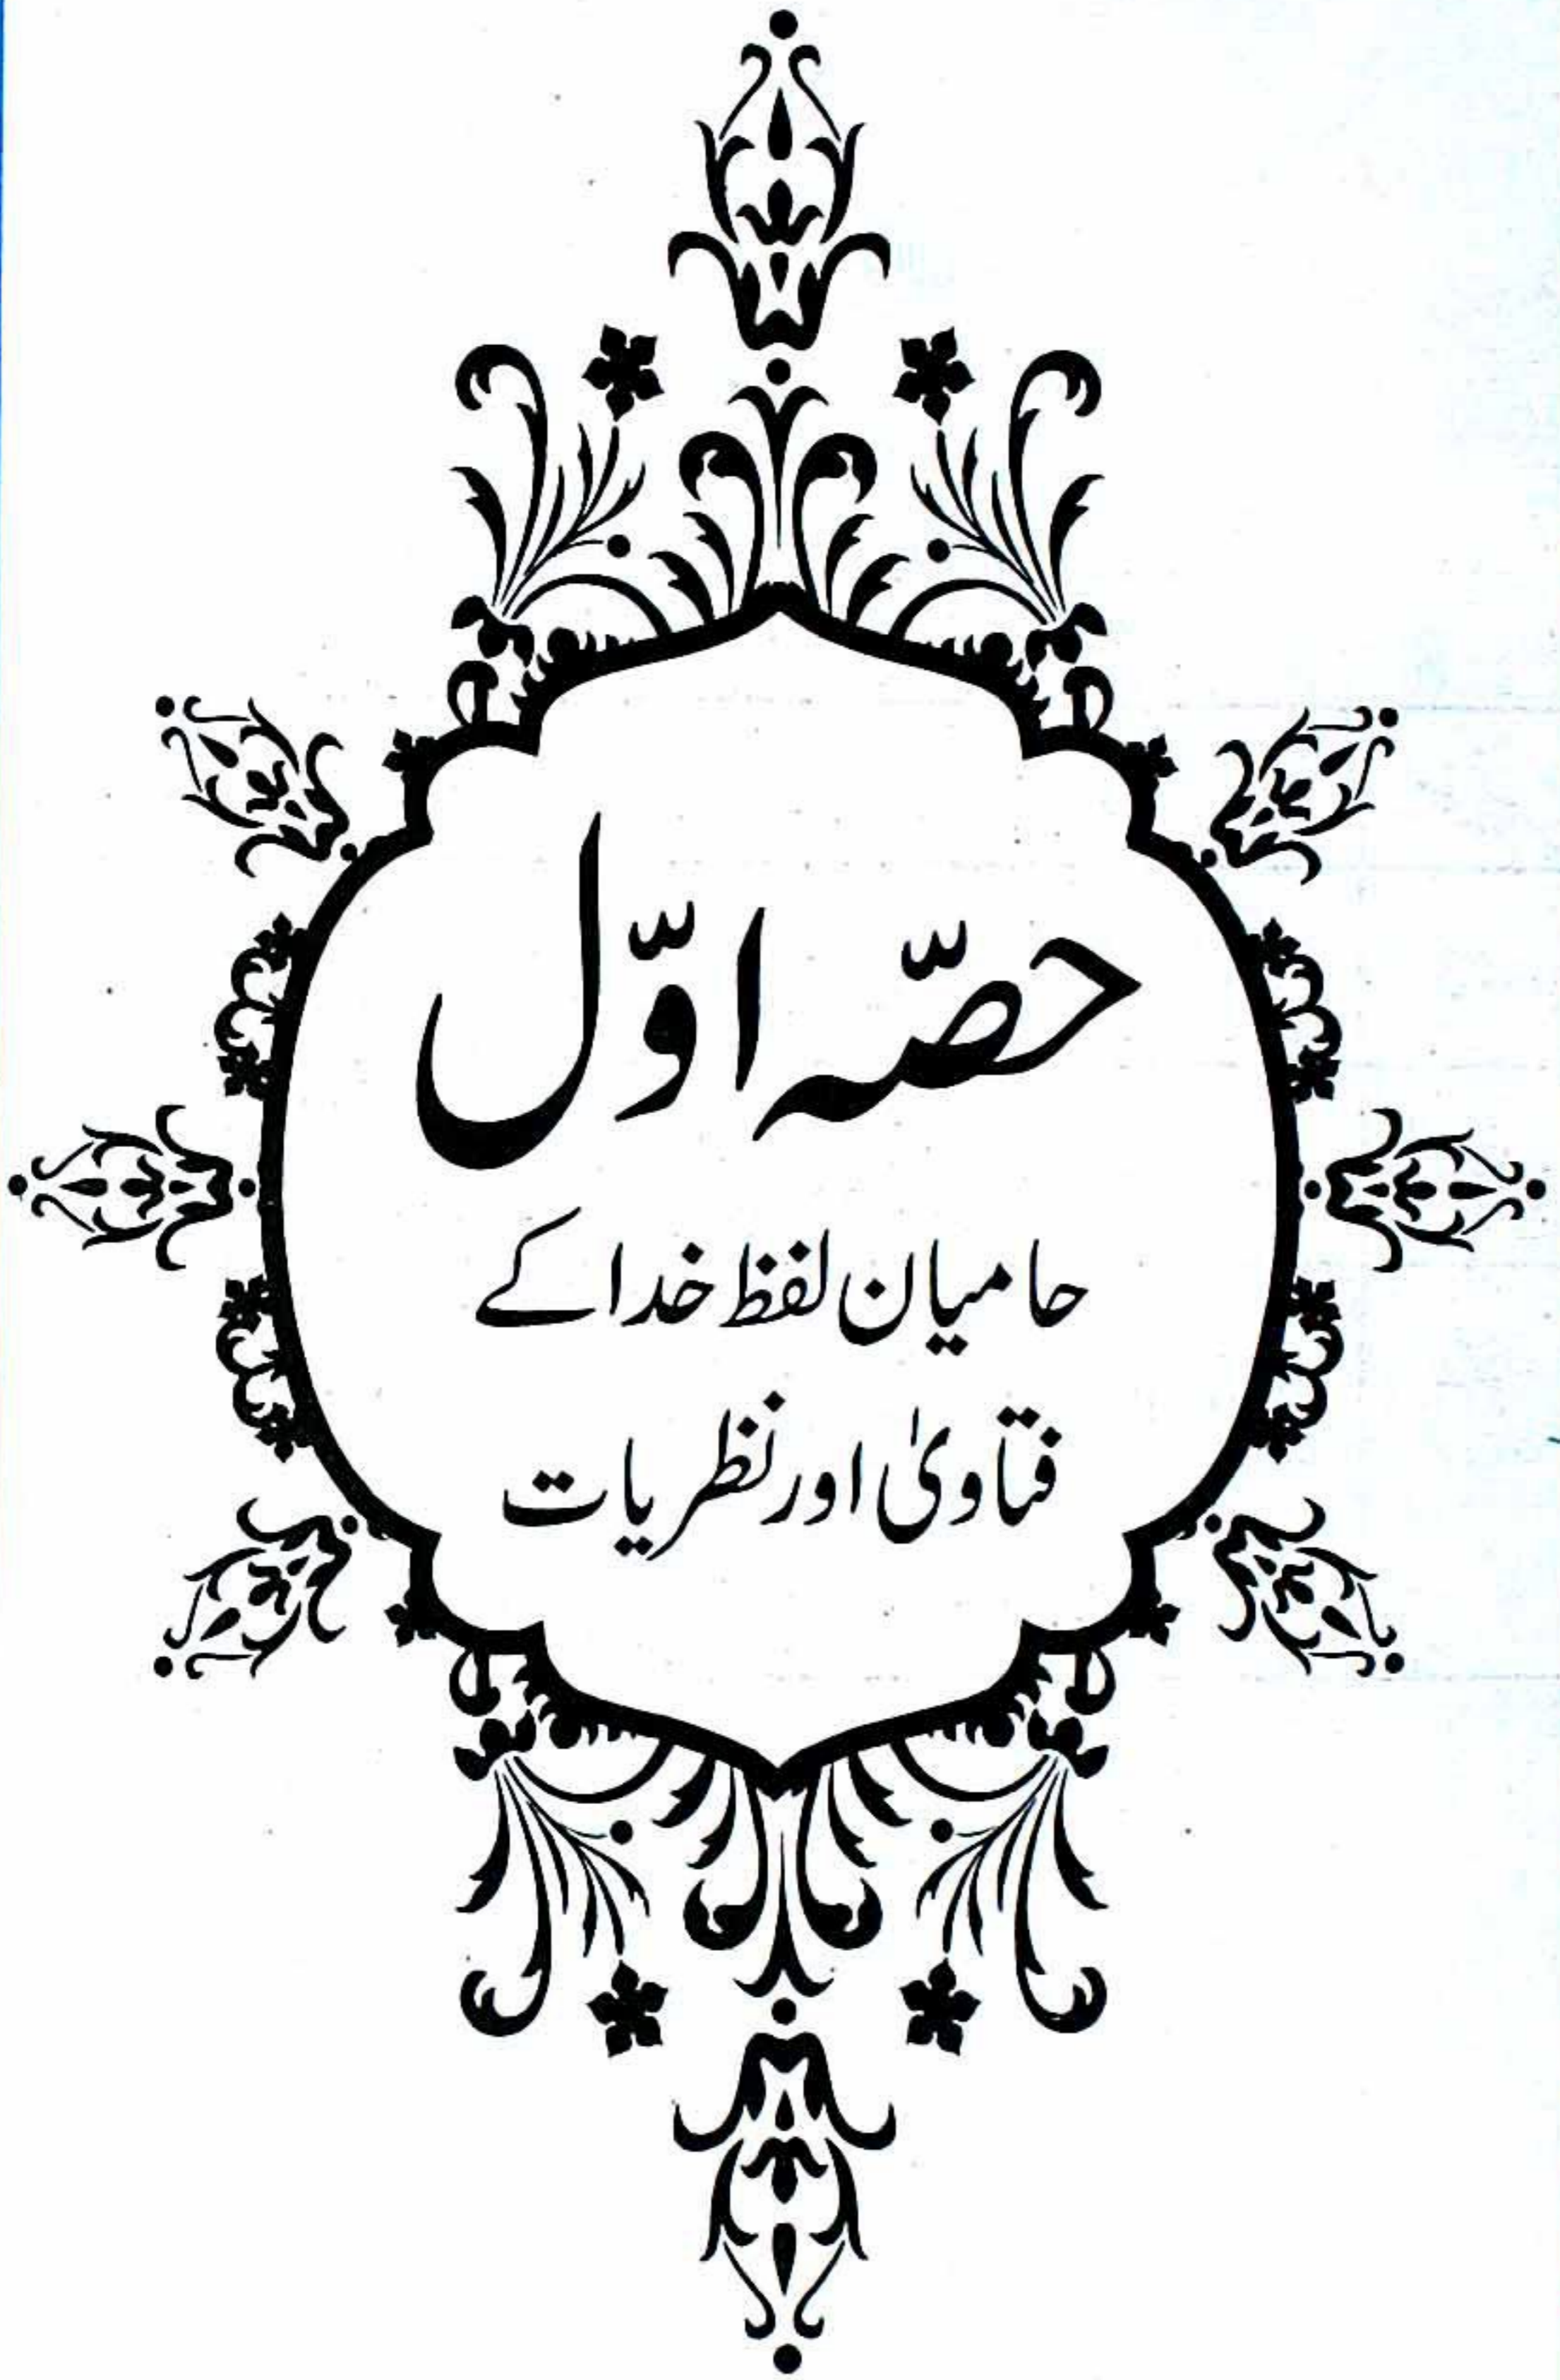 حصّہ اوّل
حامیان لفظ خدا کے
فتاویٰ اور نظریات